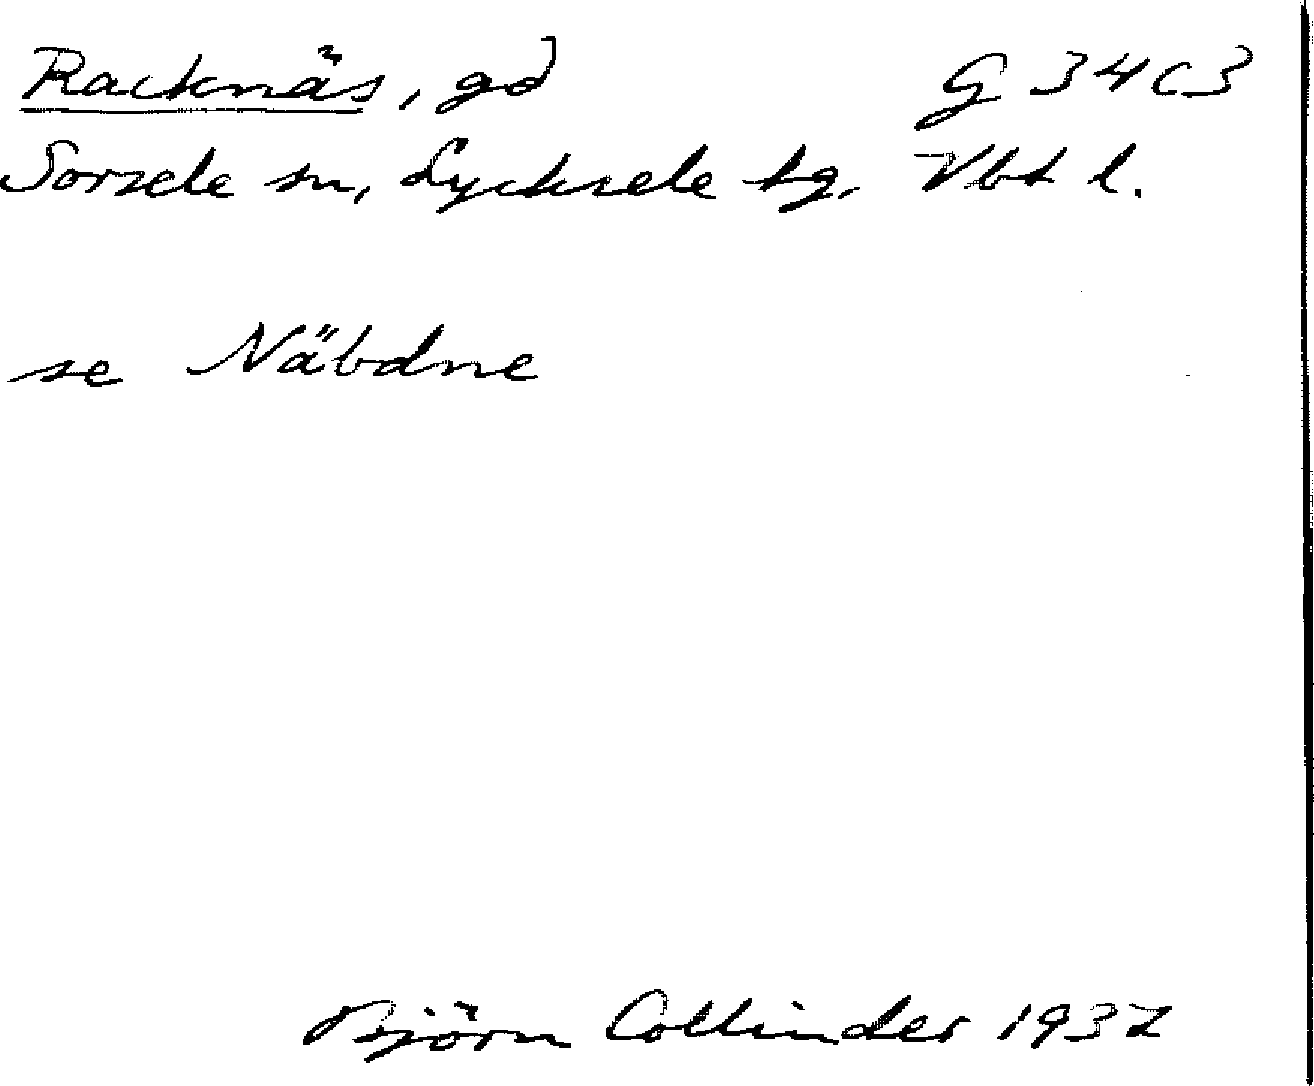 Racknäs, gd G 34 c 3
Sorsele sn, Lycksele tg. Vbt l.
se Näbdne
Björn Collinder 1937